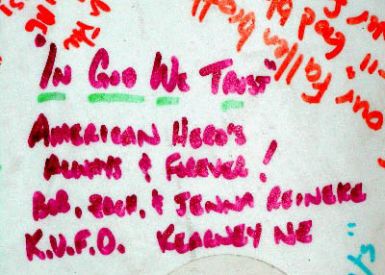 "In God We Trust"
AMERICAN HERO'S
ALWAYS & FOREVER!
BOB, ZACH, & JENNA REINEKE
K.V.F.D. KEARNEY NE
our Fallen
God bl